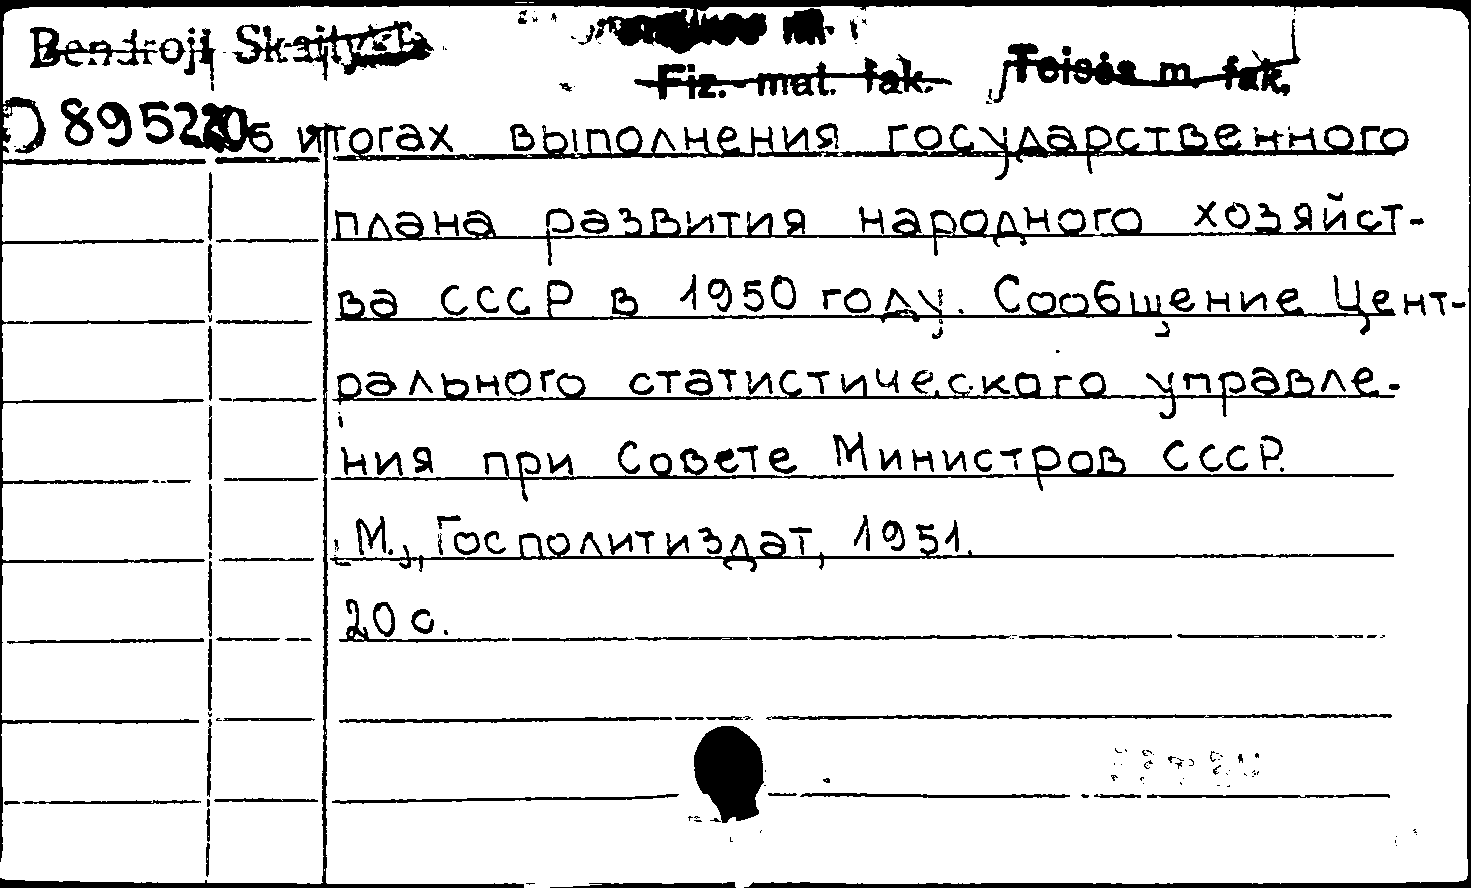 Bendroji Skaitykla
Fiz.-mat. fak. Teisės m. fak.
Об итогах выполнения государственного
плана развития народного хозяйст-
ва СССР в 1950 году. Сообщение Цент-
рального статистического управле-
ния при Совете Министров СССР.
М., Госполитиздат, 1951.
20 с.